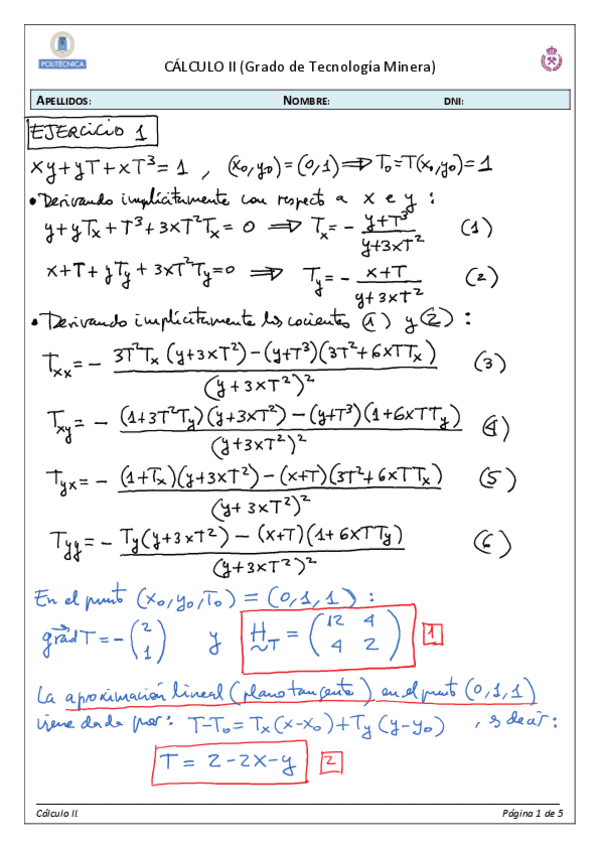 POLITÉCNICA
CÁLCULO II (Grado de Tecnología Minera)
APELLIDOS: NOMBRE: DNI:
EJERCICIO 1
xy+yT+xT³=1 , (x₀,y₀)=(0,1) ⟹ T₀=T(x₀,y₀)=1
• Derivando implícitamente con respecto a x e y :
y+yTₓ+T³+3xT²Tₓ=0 ⟹ Tₓ = - (y+T³)/(y+3xT²) (1)
x+T+yT_y+3xT²T_y=0 ⟹ T_y = - (x+T)/(y+3xT²) (2)
• Derivando implícitamente los cocientes (1) y (2) :
T_xx = - (3T²Tₓ(y+3xT²)-(y+T³)(3T²+6xTTₓ))/(y+3xT²)² (3)
T_xy = - ((1+3T²T_y)(y+3xT²)-(y+T³)(1+6xTT_y))/(y+3xT²)² (4)
T_yx = - ((1+Tₓ)(y+3xT²)-(x+T)(3T²+6xTTₓ))/(y+3xT²)² (5)
T_yy = - (T_y(y+3xT²)-(x+T)(1+6xTT_y))/(y+3xT²)² (6)
En el punto (x₀,y₀,T₀)=(0,1,1) :
grad T = - (2 1) y H_T = (12 4 4 2) 1
La aproximación lineal (plano tangente) en el punto (0,1,1)
viene dada por: T-T₀=Tₓ(x-x₀)+T_y(y-y₀) , es decir:
T = 2-2x-y 2
Cálculo II. Página 1 de 5